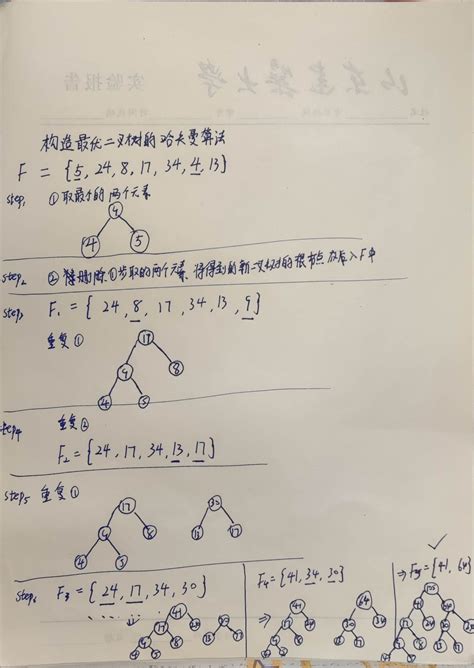 山东建筑大学 实验报告
构造最优二叉树的哈夫曼算法
F = {5, 24, 8, 17, 34, 4, 13}
step1 ①取最小的两个元素
9
4 5
step2 ②删除①步取的两个元素,将得到的新二叉树的根节点放入F中
step3 F1 = { 24, 8, 17, 34, 13, 9}
重复①
17
9 8
4 5
step4 重复②
F2 = {24, 17, 34, 13, 17}
step5 重复①
17 30
9 8 13 17
4 5
step6 F3 = {24, 17, 34, 30}
F4 = {41, 34, 30}
⇒ F5 = {41, 64}